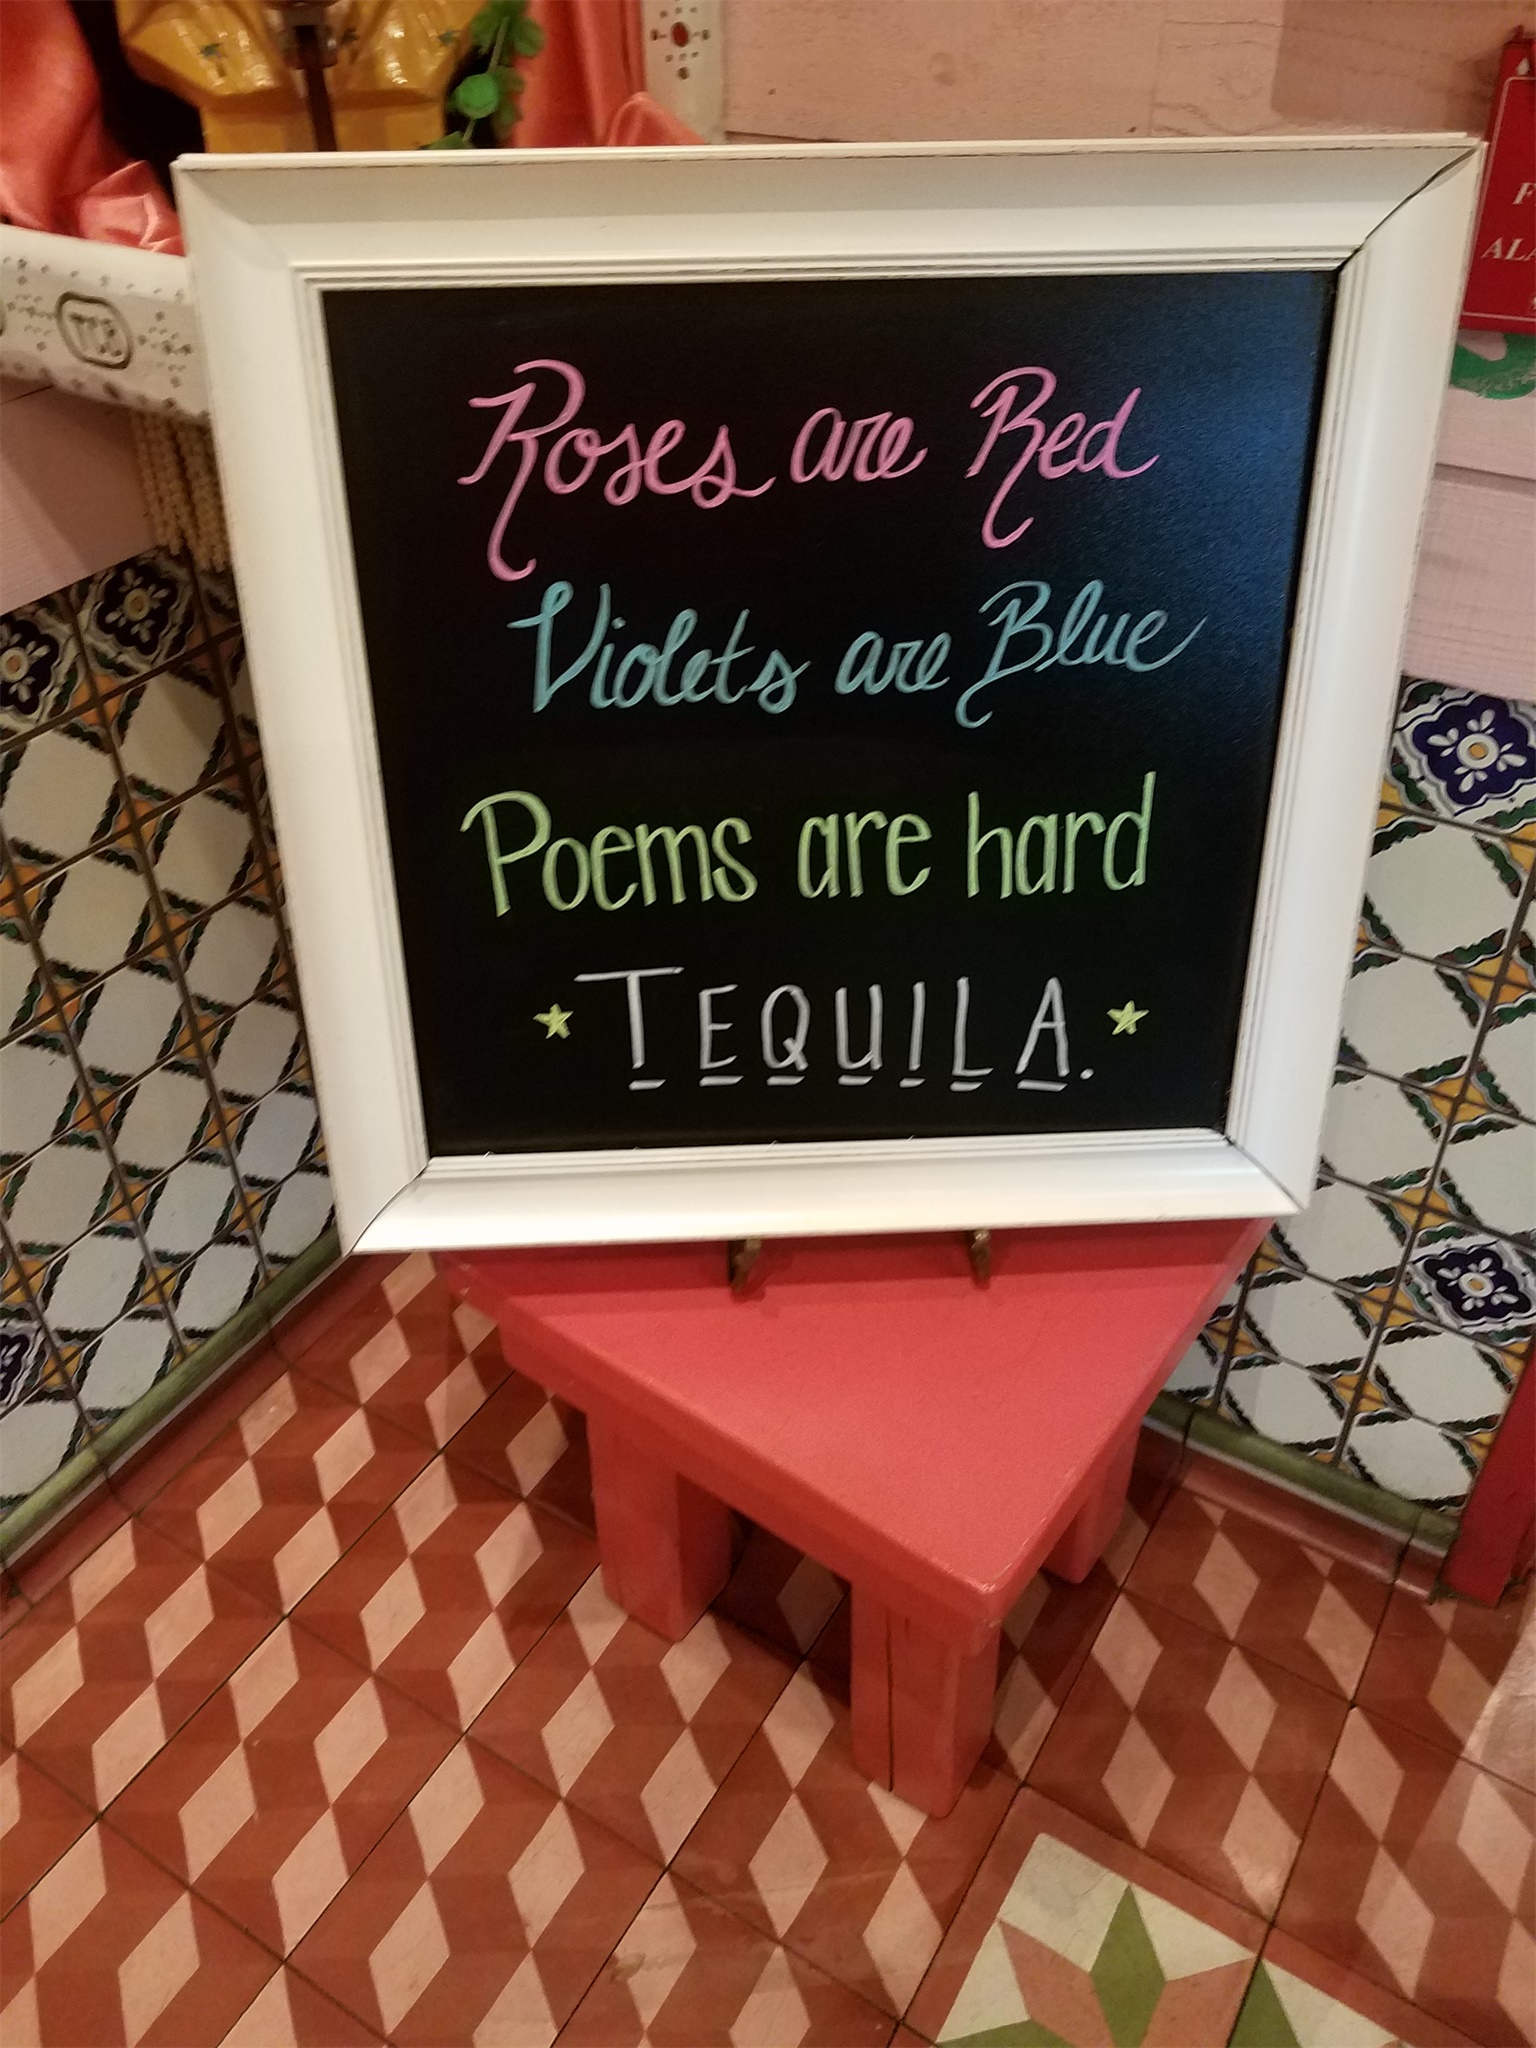 Roses are Red
Violets are Blue
Poems are hard
TEQUILA.
TCB